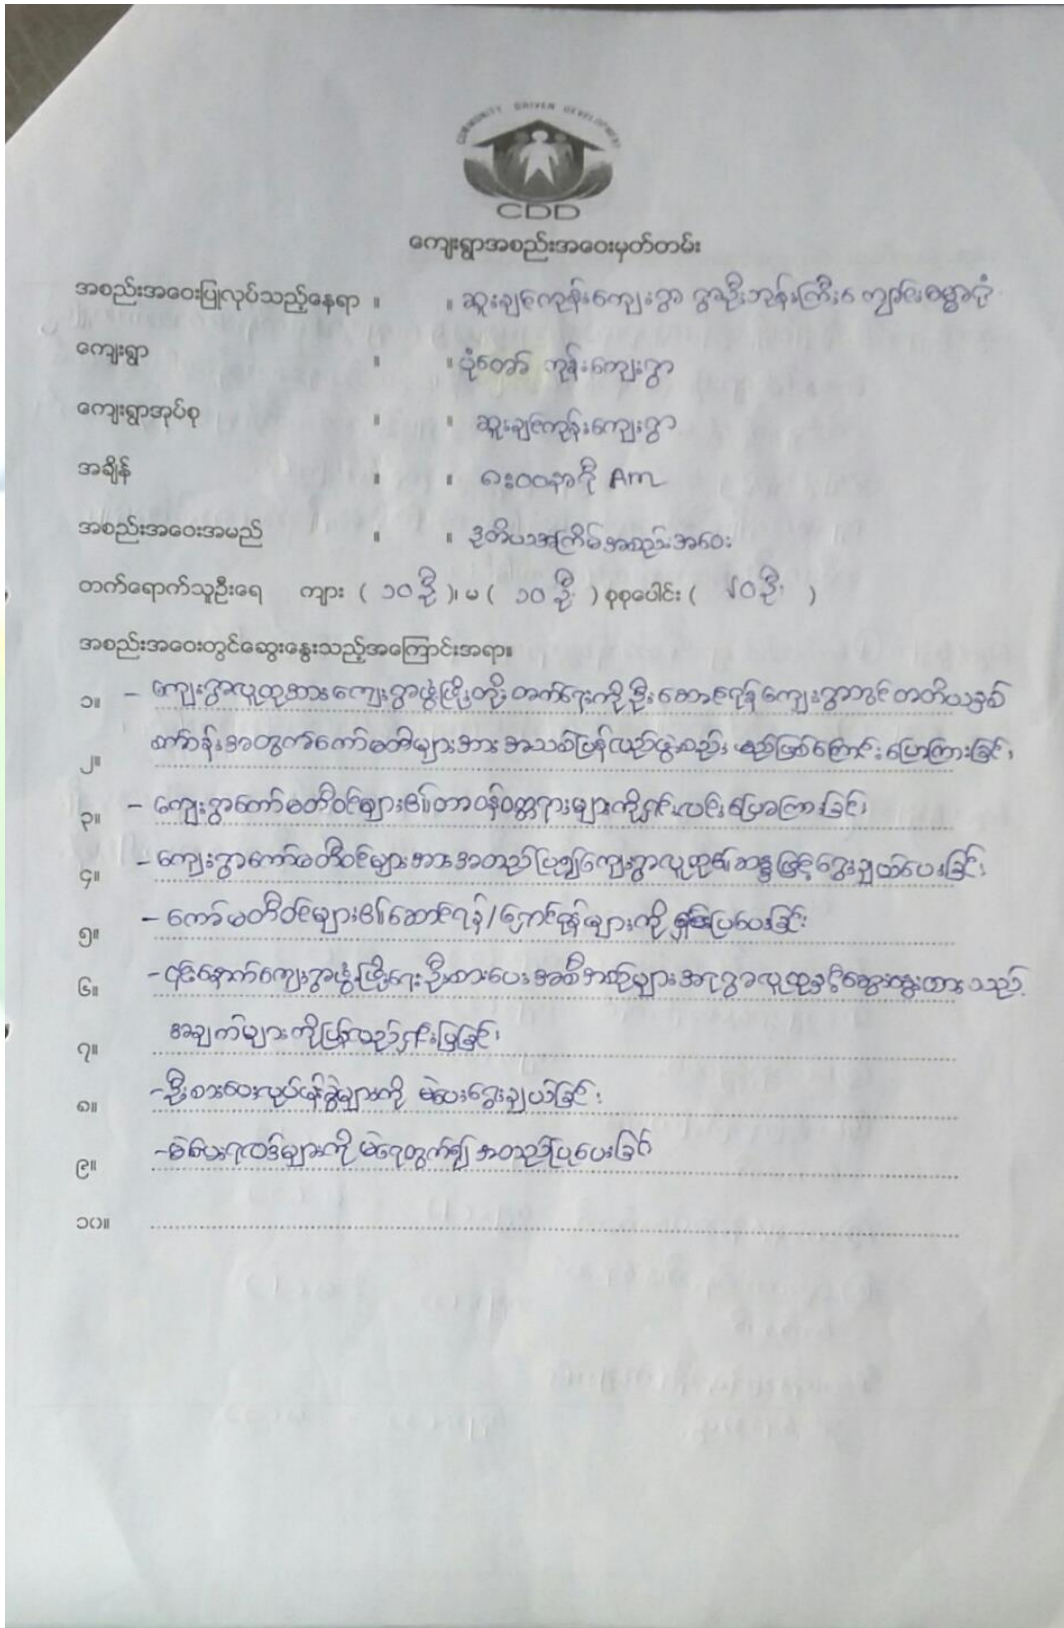 COMMUNITY DRIVEN DEVELOPMENT
CDD
ကျေးရွာအစည်းအဝေးမှတ်တမ်း
အစည်းအဝေးပြုလုပ်သည့်နေရာ ။ ။ ဆူးချင်ကုန်းကျေးရွာ ရွာဦးဘုန်းကြီးကျောင်းဓမ္မာရုံ
ကျေးရွာ ။ ။ ပုံတော် ကုန်းကျေးရွာ
ကျေးရွာအုပ်စု ။ ။ ဆူးချင်ကုန်းကျေးရွာ
အချိန် ။ ။ ၈း၀၀နာရီ Am
အစည်းအဝေးအမည် ။ ။ ဒုတိယအကြိမ်အစည်းအဝေး
တက်ရောက်သူဦးရေ ကျား ( ၁၀ဦး )၊ မ ( ၁၀ဦး ) စုစုပေါင်း ( ၂၀ဦး )
အစည်းအဝေးတွင်ဆွေးနွေးသည့်အကြောင်းအရာ။
၁။ – ကျေးရွာလူထုအားကျေးရွာဖွံ့ဖြိုးတိုးတက်ရေးကို ဦးဆောင်ရန် ကျေးရွာတွင် တတိယနှစ်
၂။ အတွက်ကော်မတီများအား အသစ်ပြန်လည်ဖွဲ့စည်းမည်ဖြစ်ကြောင်း ပြောကြားခြင်း၊
၃။ – ကျေးရွာကော်မတီဝင်များ၏တာဝန်ဝတ္တရားများကိုရှင်းလင်းပြောကြားခြင်း၊
၄။ – ကျေးရွာကော်မတီဝင်များအားအတည်ပြု၍ကျေးရွာလူထု၏ဆန္ဒဖြင့်ရွေးချယ်ပေးခြင်း၊
၅။ – ကော်မတီဝင်များ၏ဆောင်ရန်/ရှောင်ရန်များကို ရှင်းပြပေးခြင်း
၆။ – ၎င်းနောက်ကျေးရွာဖွံ့ဖြိုးရေးဦးစားပေးအစီအစဉ်များအားရွာလူထုနှင့်ဆွေးနွေးထားသည့်
၇။ အချက်များကိုပြန်လည်ရှင်းပြခြင်း၊
၈။ – ဦးစားပေးလုပ်ငန်းခွဲများကို မဲပေးရွေးချယ်ခြင်း၊
၉။ – မဲပေးရလဒ်များကို မဲရေတွက်၍ အတည်ပြုပေးခြင်း
၁၀။